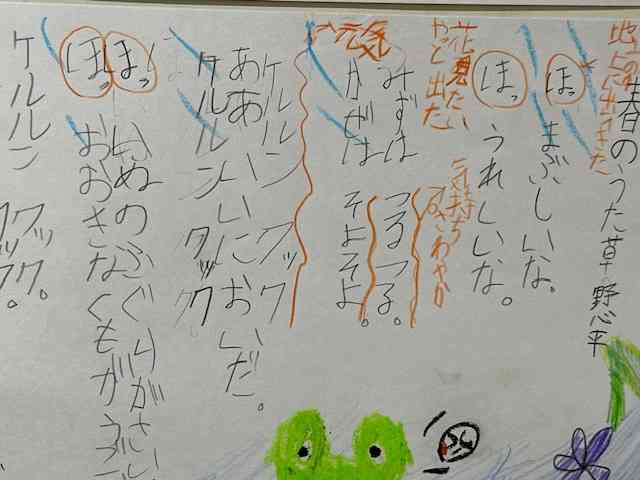 地上に出てきた
春のうた 草野心平
ほっ まぶしいな。
ほっ うれしいな。
やっと出た
花見たい
気持ち
さわやか
みずは つるつる。
かぜは そよそよ。
元気
ケルルン クック
ああいいにおいだ。
ケルルン クック
ほっ いぬのふぐりがさい
ほっ おおきなくもがうご
ケルルン クック。